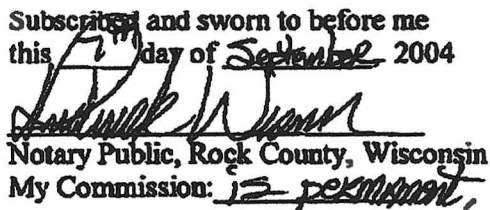 Subscribed and sworn to before me
this 7 day of September 2004
Notary Public, Rock County, Wisconsin
My Commission: is permanent.